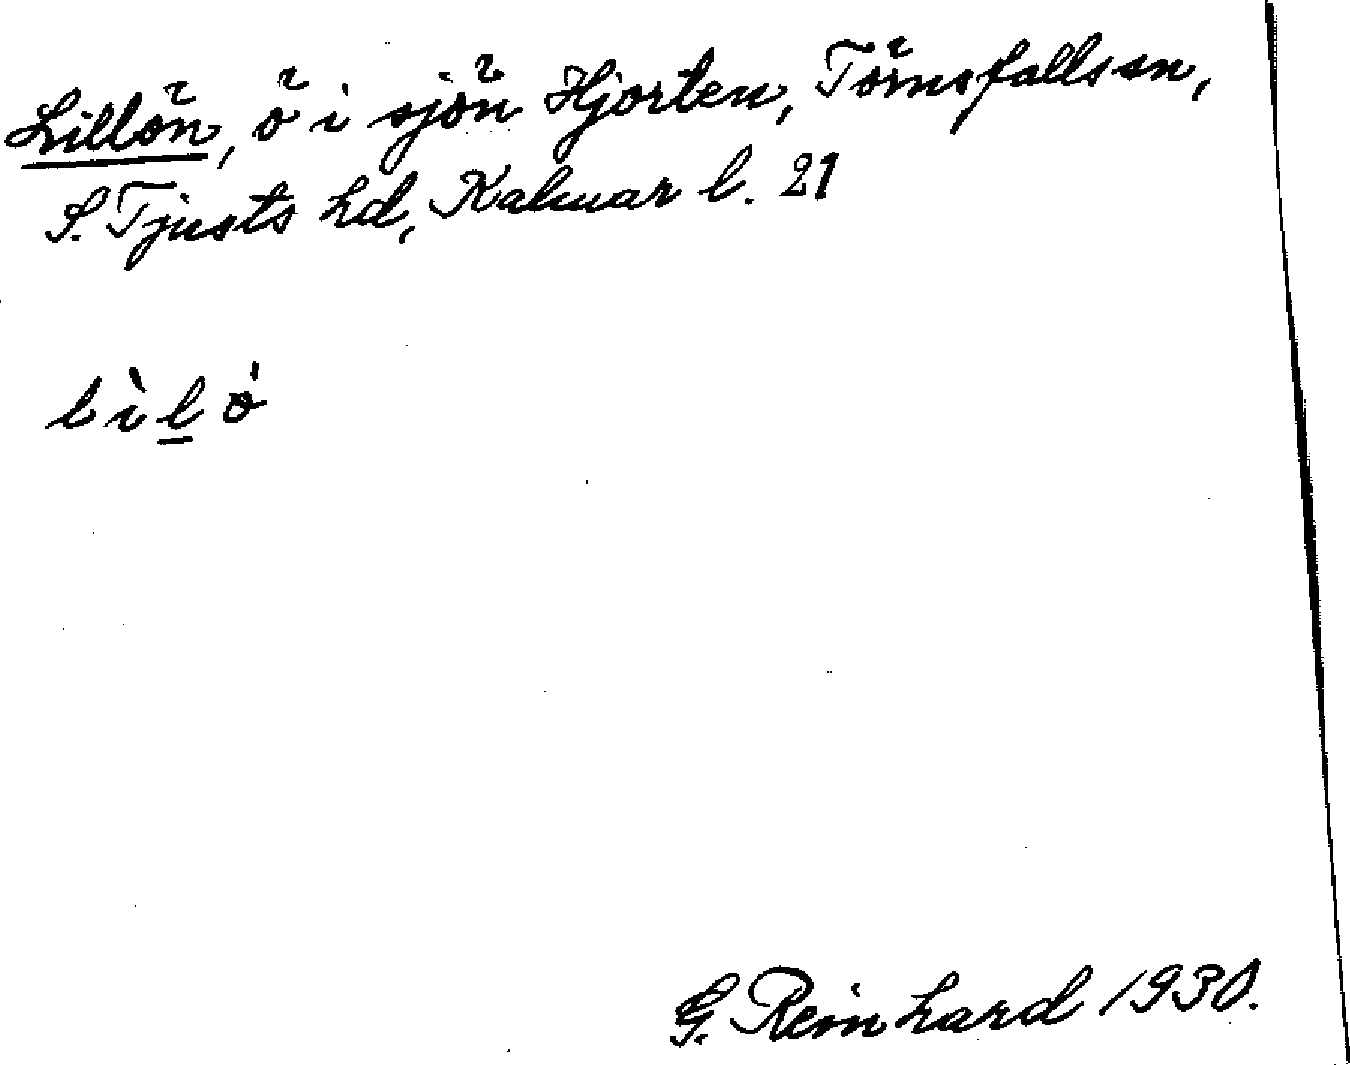 Lillön, ö i sjön Hjorten, Törnsfalls sn,
S. Tjusts hd, Kalmar l. 21
lìlö́
G. Reinhard 1930.